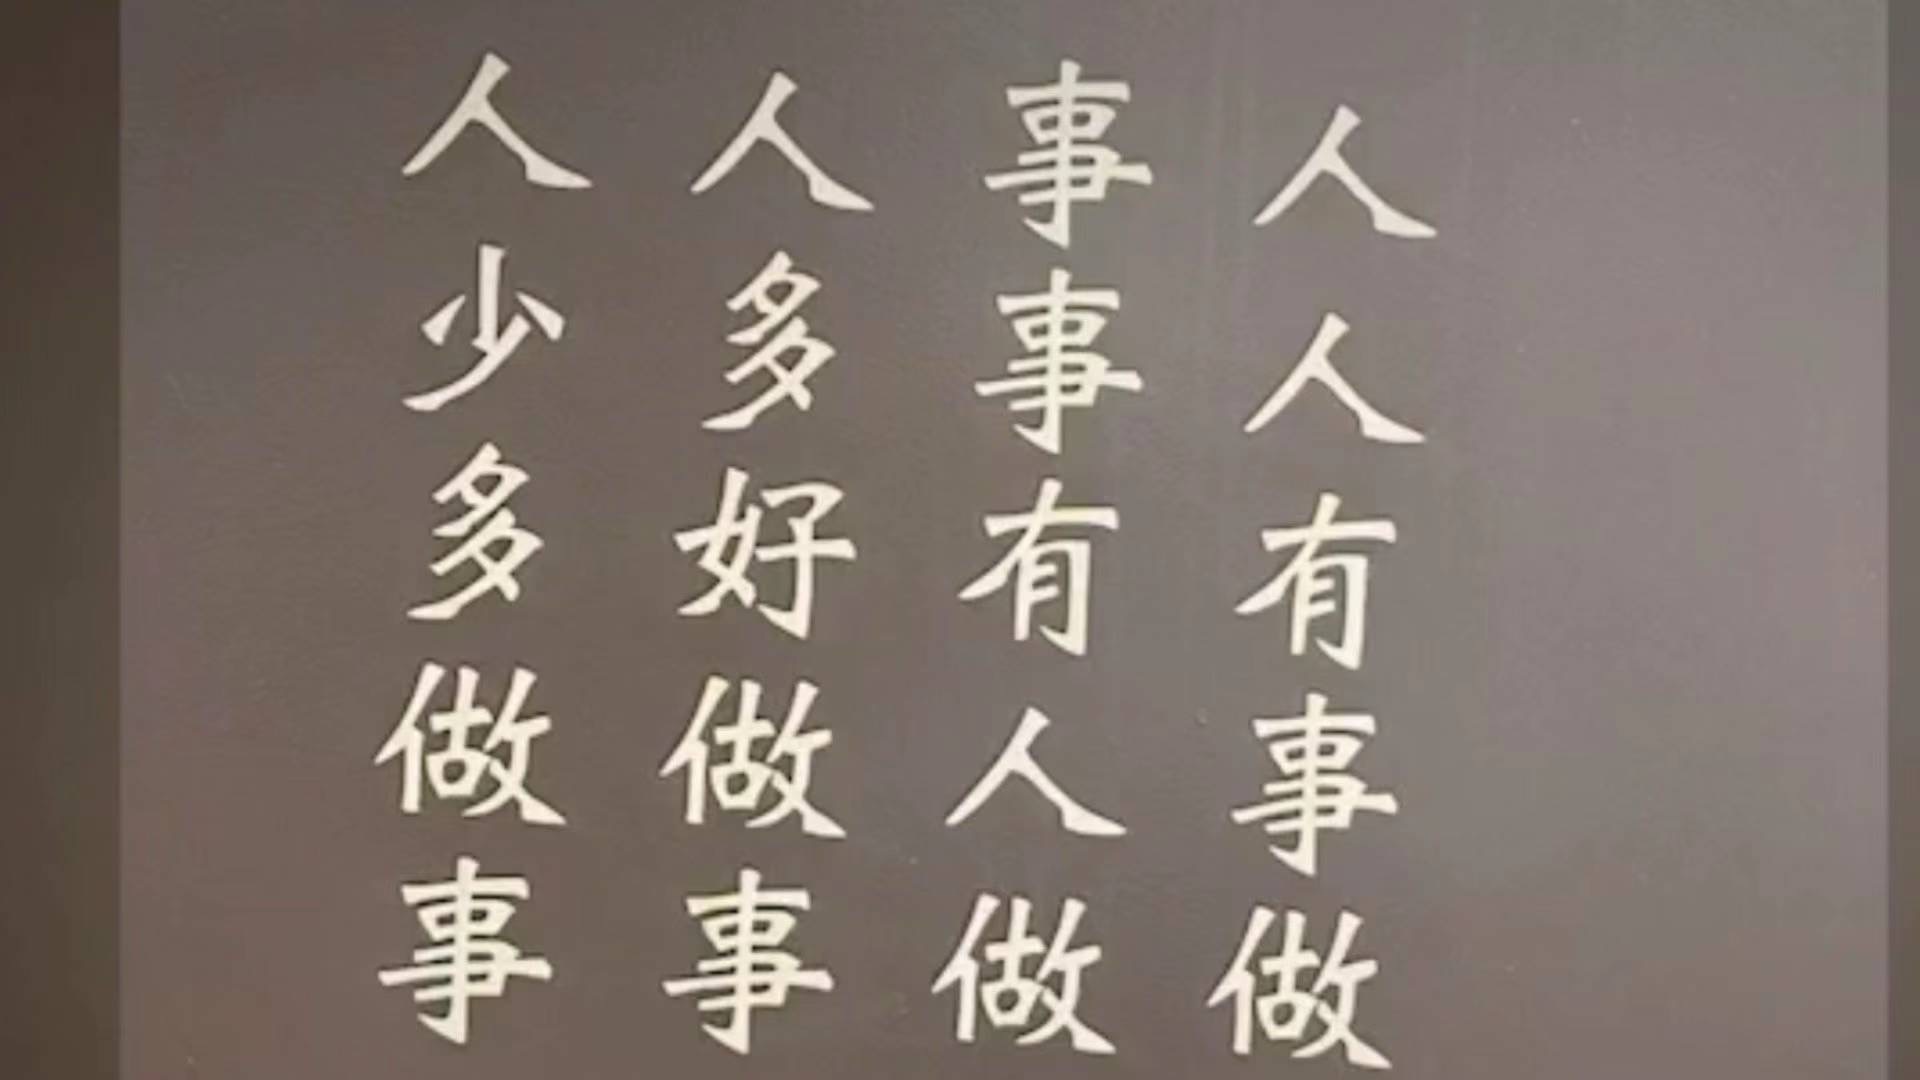 人人有事做
事事有人做
人多好做事
人少多做事